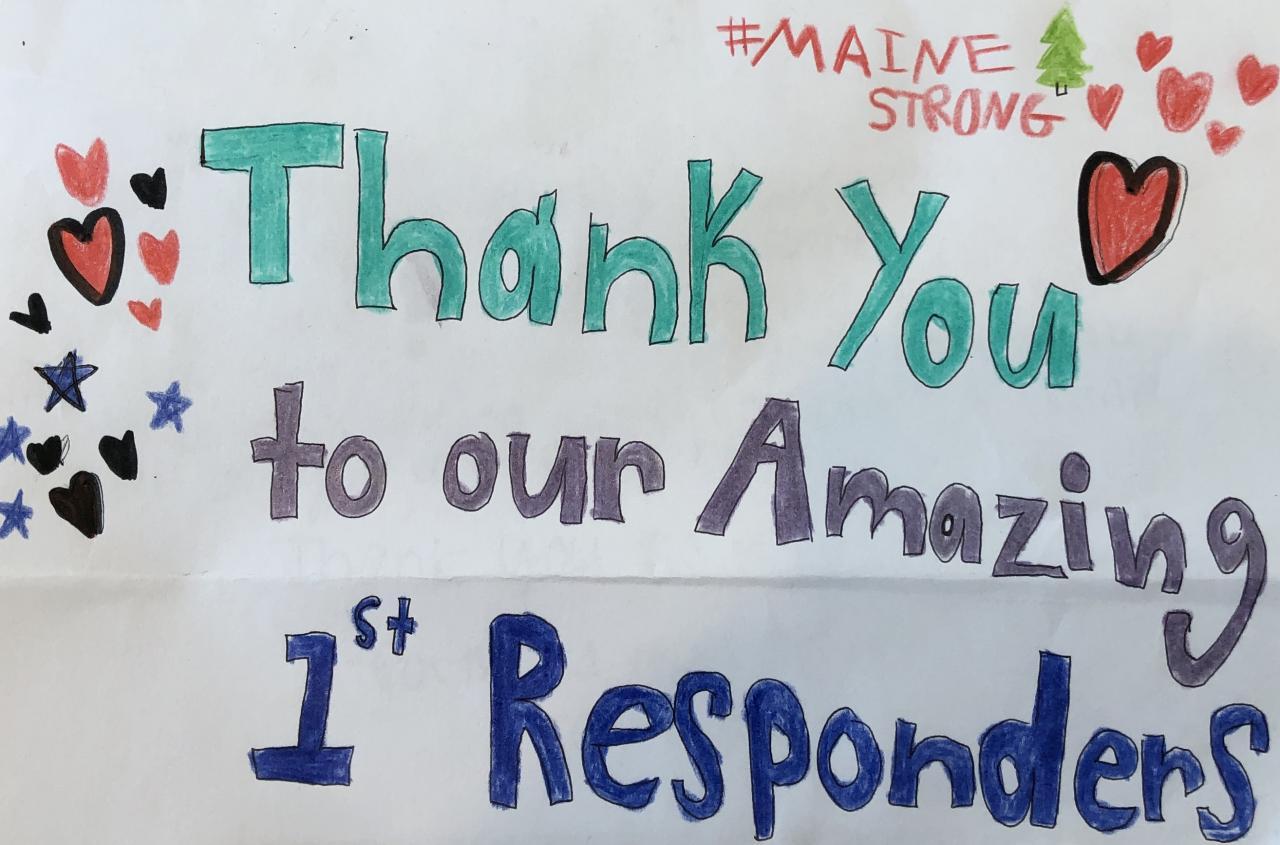 #MAINE
STRONG
Thank You
to our Amazing
1st Responders